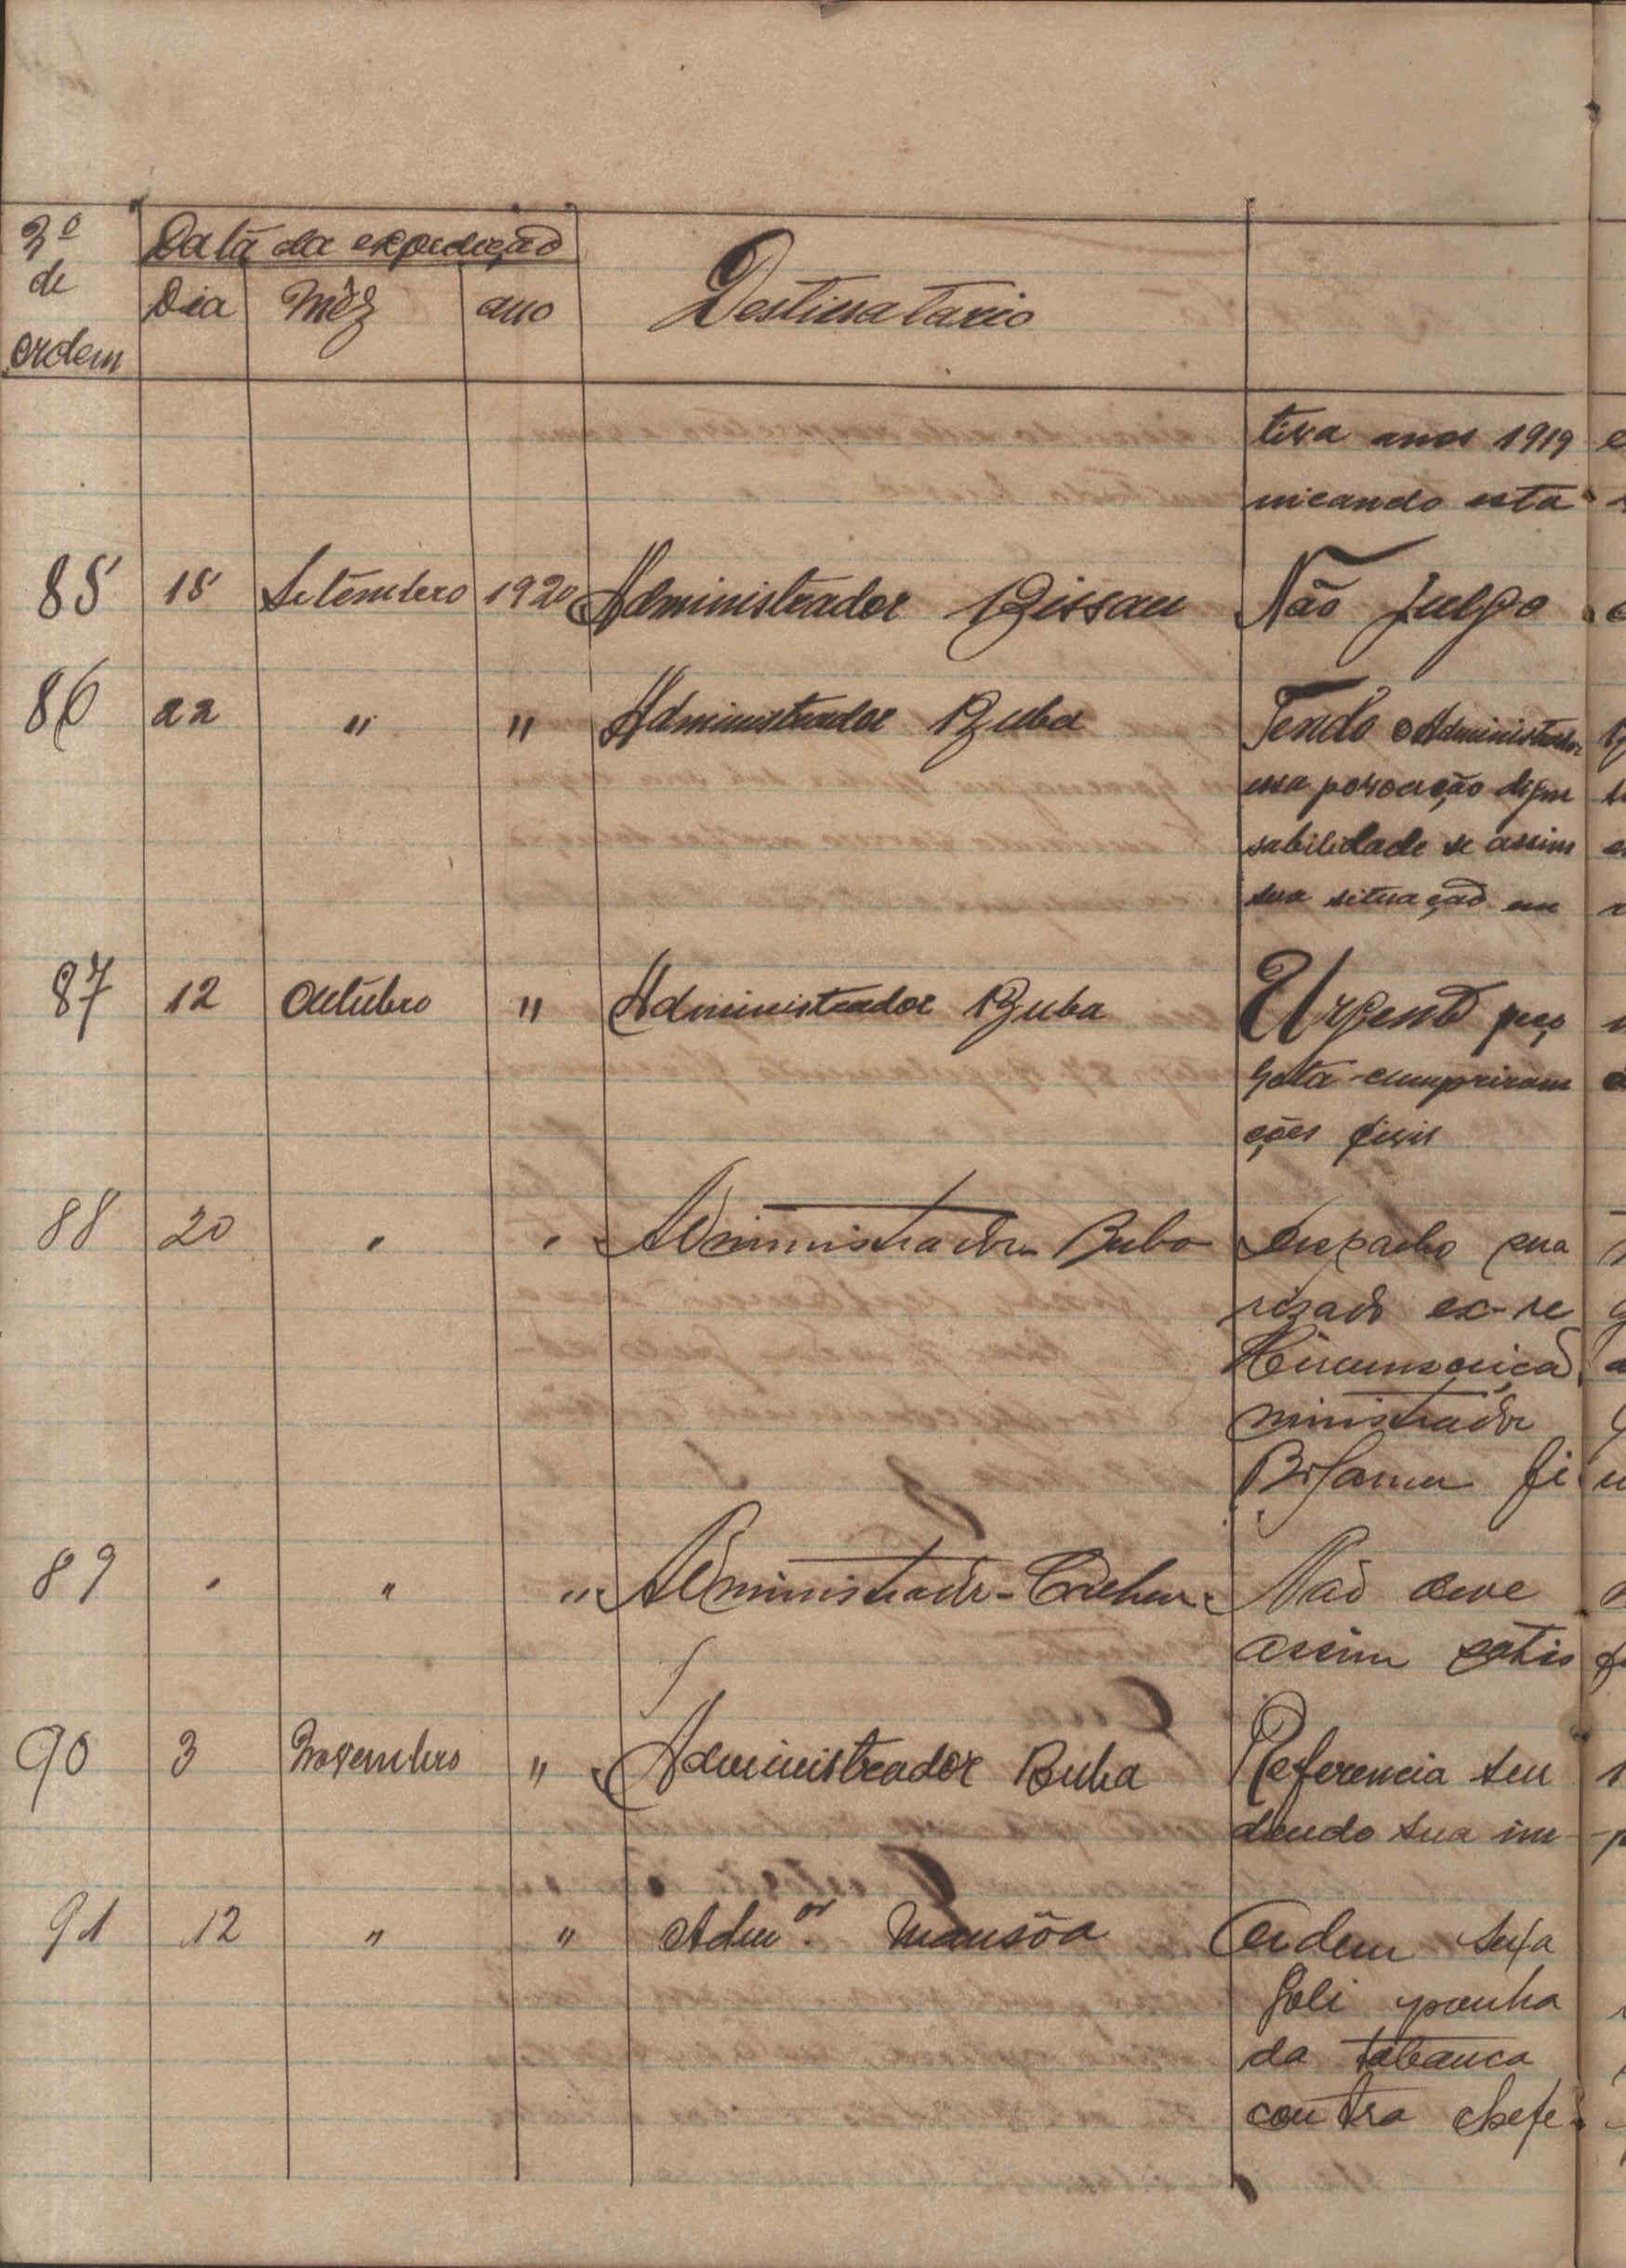 Nº de ordem
Data da expedição
Dia Mêz ano
Destinatario
tiva anos 1919
nicando esta
85 18 Setembro 1920 Administrador Bissau Não julgo
86 22 " " Administrador Buba Tendo o Administrador
essa
sabilidade se assim
sua situação em
87 12 Outubro " Administrador Buba Urgente peço
cumpriram
ções
88 20 " " Administrador Buba despacho
rizado ex-re
Circunscrição
ministrador
fi
89 " " " Administrador - Cacheu Não deve
assim satis
90 3 Novembro " Administrador Buba Referencia seu
dendo sua im
91 12 " " Admor. Mansôa Ordem seja
da tabanca
contra chefe